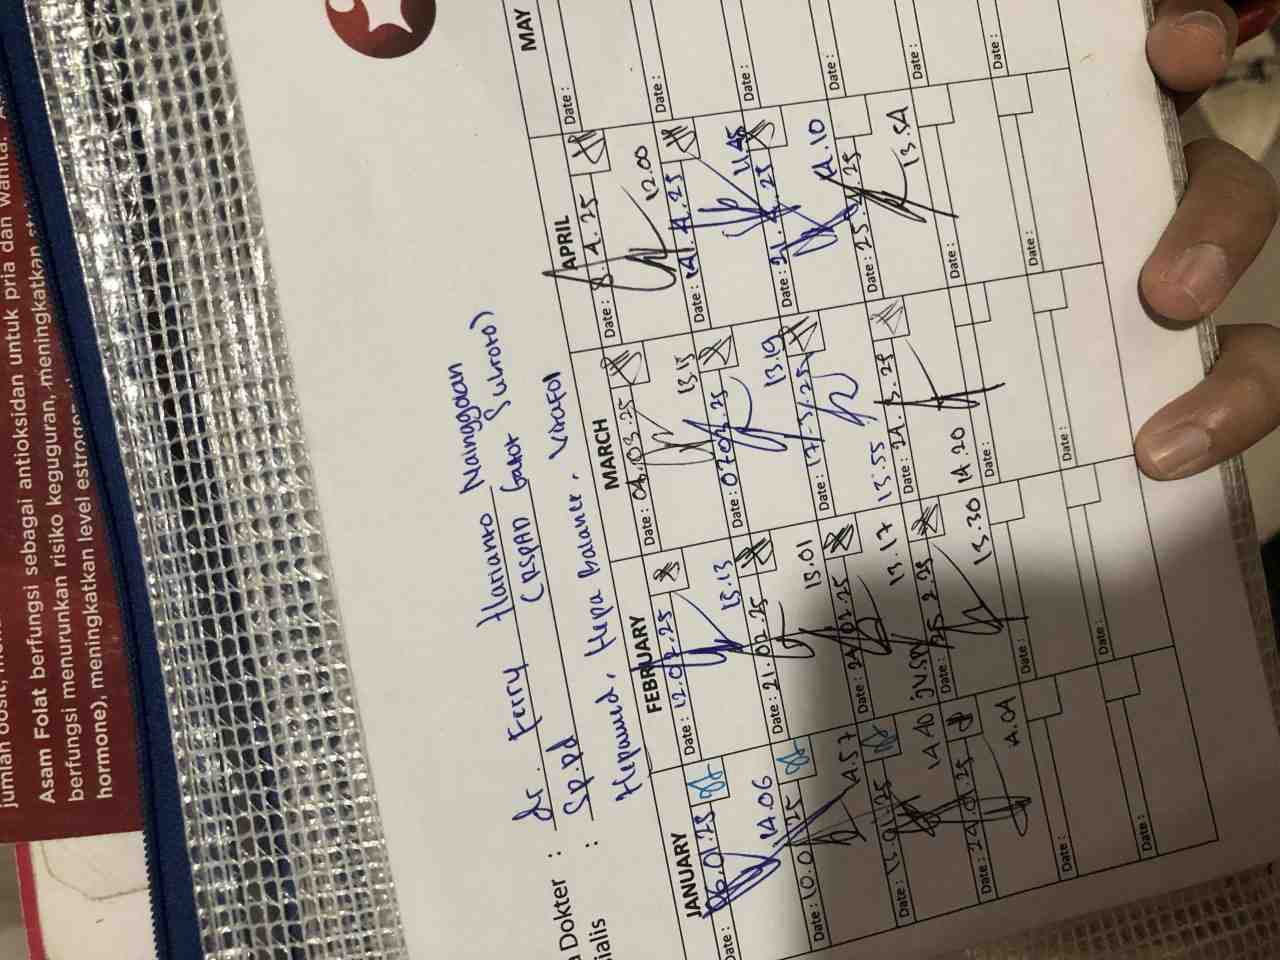 jumlah
Asam Folat berfungsi sebagai antioksidan untuk pria dan wanita.
berfungsi menurunkan risiko keguguran, meningkatkan
hormone), meningkatkan level
Dokter : dr. Ferry Harianto Nainggolan
ialis : Sp.Pd (RSPAD Gatot Subroto)
Hepamed, Hepa Balance,
JANUARY FEBRUARY MARCH APRIL MAY
Date : 06.01.25 Date : 12.02.25 Date : 04.03.25 Date : 8.4.25 Date :
14.06 13.13 13.13 12.00
Date : 10.01.25 Date : 21.02.25 Date : 07.03.25 Date : 14.4.25 Date :
14.57 13.01 13.19 11.45
Date : Date : 24.02.25 Date : 17-3-25 Date : 21.4.25 Date :
14.40 13.17 13.55 14.10
Date : Date : Date : Date : 25.4.25 Date :
14.04 13.30 14.20 13.54
Date : Date : Date : Date : Date :
Date : Date : Date : Date : Date :